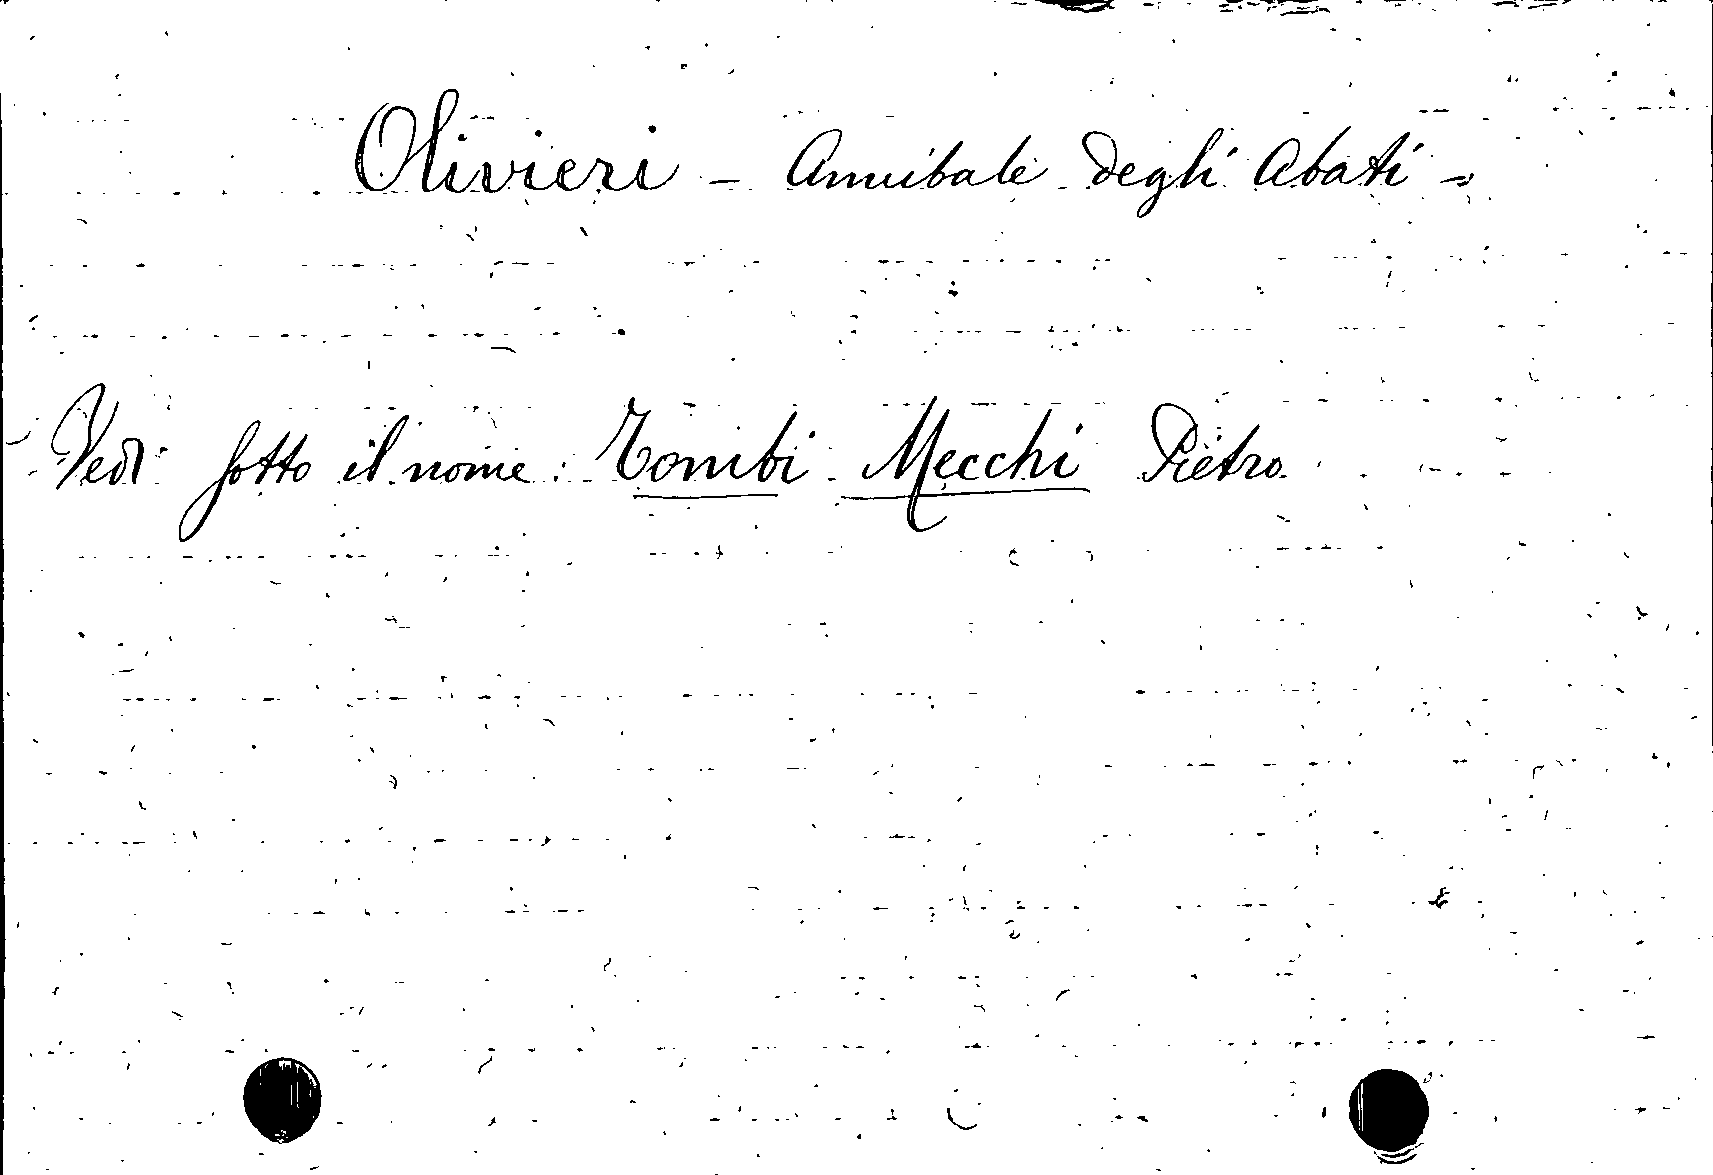 Olivieri - Annibale degli Abati =
Vedi sotto il nome: Tombi Mecchi Pietro